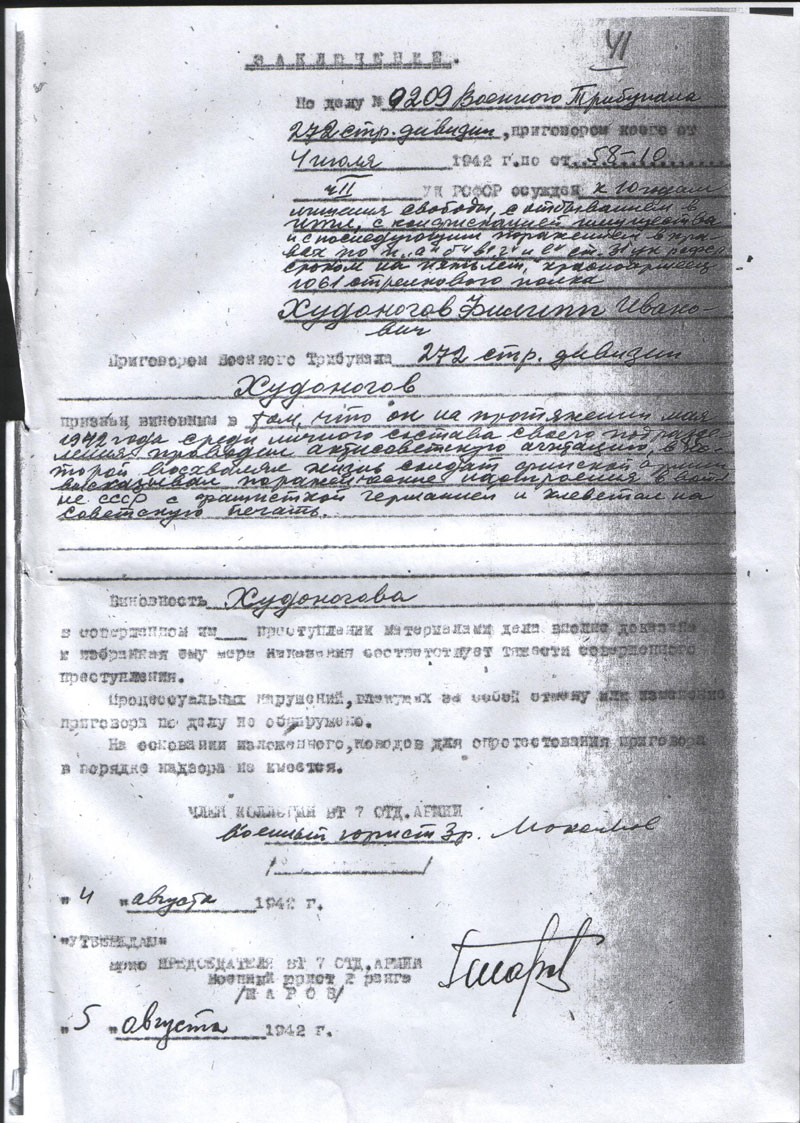 41
ЗАКЛЮЧЕНИЕ.
По делу № 0209 Военного Трибунала
272 стр. дивизии, приговором коего от
4 июля 1942 г. по ст. 58-10
ч II УК РСФСР осужден к 10 годам
лишения свободы, с отбыванием в
ИТЛ, с конфискацией имущества
и с последующим поражением в пра-
вах по п. "а" "б" "в" "г" и "е" ст. 31 УК РСФСР
сроком на пять лет, красноармеец
1061 стрелкового полка
Худоногов Филипп Ивано-
вич
Приговором Военного Трибунала 272 стр. дивизии
Худоногов
признан виновным в том, что он на протяжении мая
1942 года среди личного состава своего подразде-
ления проводил антисоветскую агитацию, в ко-
торой восхвалял жизнь солдат финской армии
высказывал пораженческие настроения в вой-
не СССР с фашисткой германией и клеветал на
советскую печать.
Виновность Худоногова
в совершенном им преступлении материалами дела вполне доказана
и избранная ему мера наказания соответствует тяжести совершенного
преступления.
Процессуальных нарушений, влекущих за собой отмену или изменение
приговора по делу не обнаружено.
На основании изложенного, поводов для опротестования приговора
в порядке надзора не имеется.
ЧЛЕН КОЛЛЕГИИ ВТ 7 ОТД. АРМИИ
Военный юрист 3 р.
"4" августа 1942 г.
"УТВЕРЖДАЮ"
ВРИО ПРЕДСЕДАТЕЛЯ ВТ 7 ОТД. АРМИИ
Военный юрист 2 ранга
/ШАРОВ/
"5" августа 1942 г.